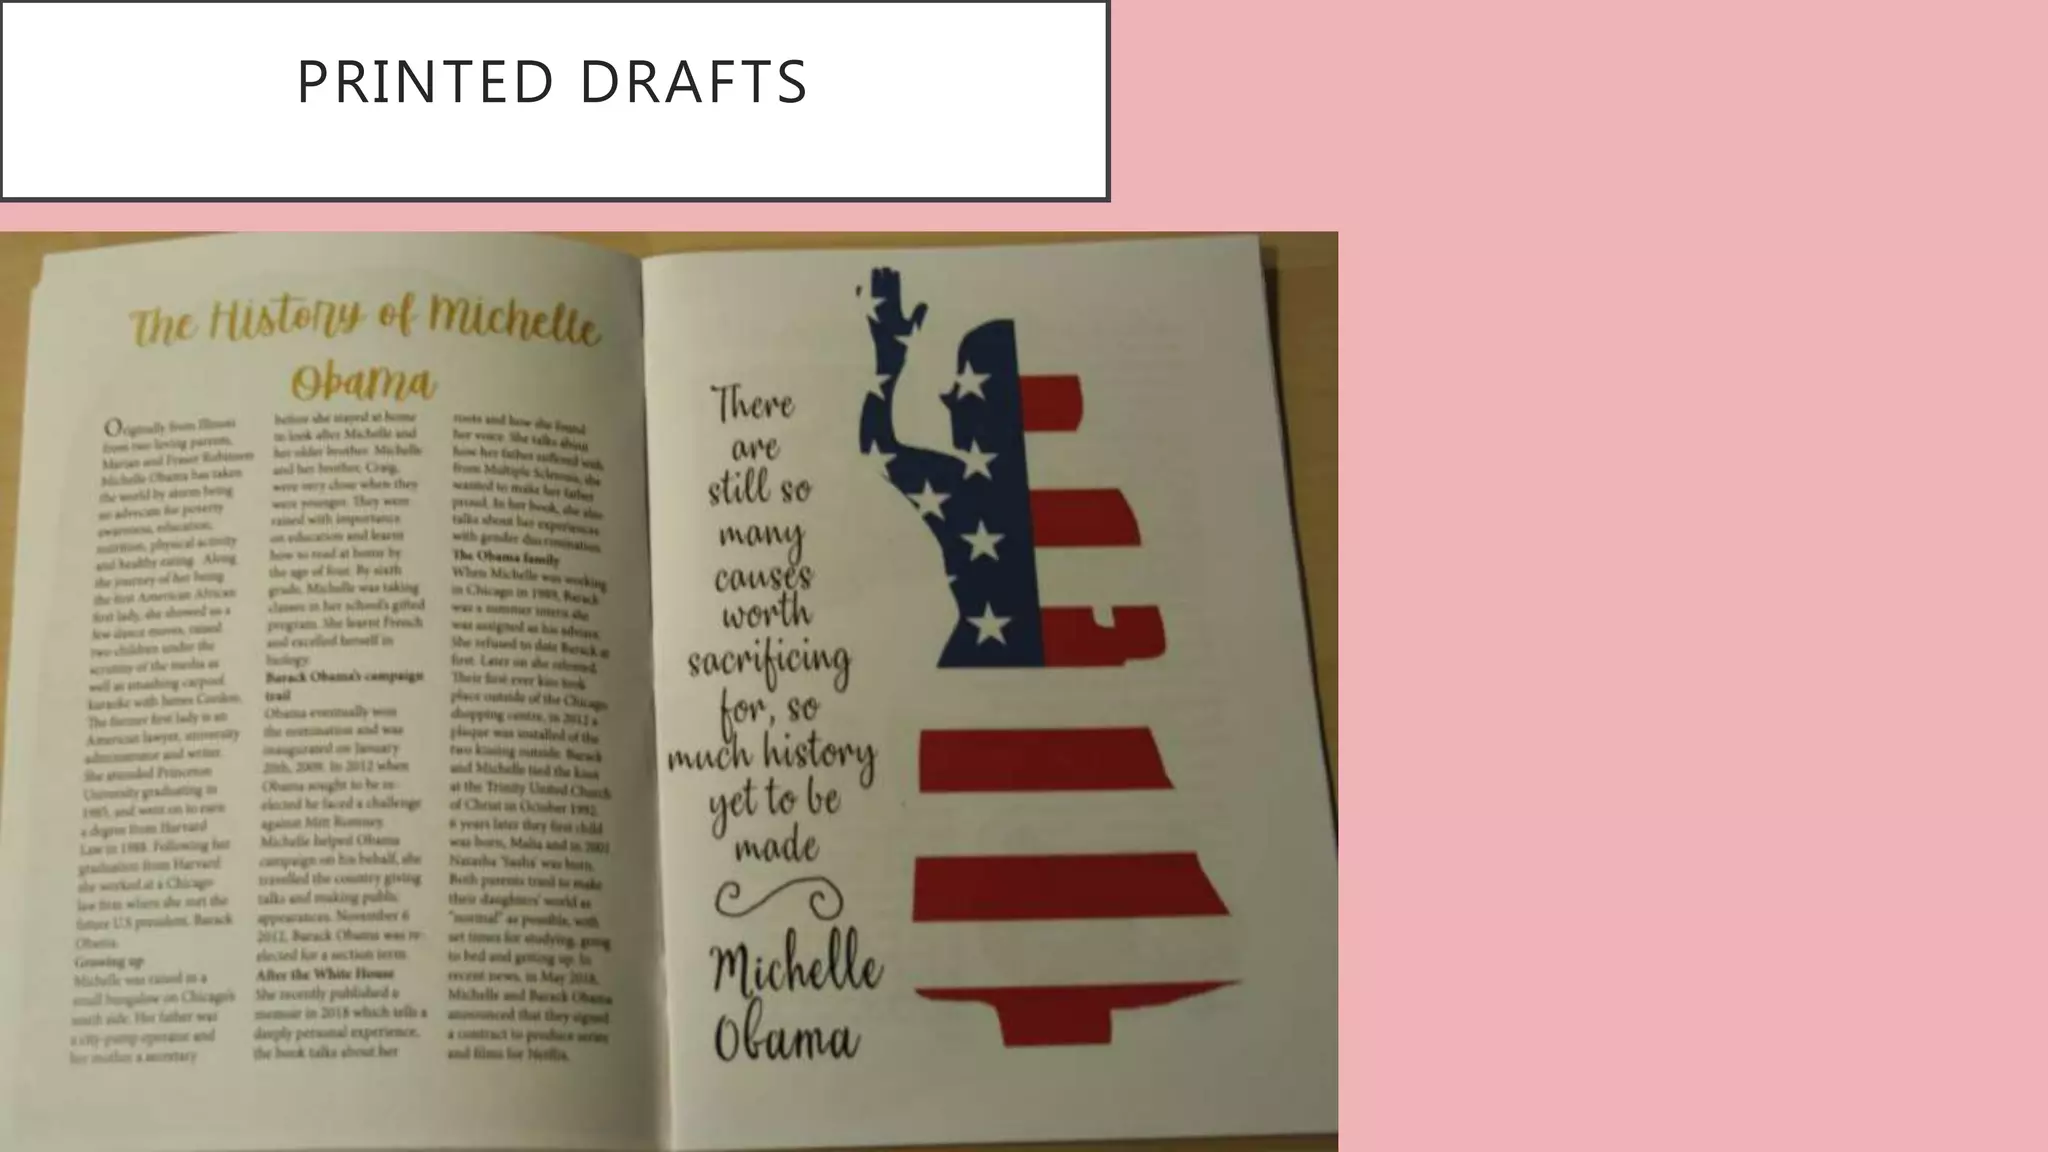 PRINTED DRAFTS
The History of Michelle
Obama
Originally from Illinois
from two loving parents,
Marian and Fraser Robinson
Michelle Obama has taken
the world by storm being
an advocate for poverty
awareness, education,
nutrition, physical activity
and healthy eating. Along
the journey of her being
the first American African
first lady, she showed us a
few dance moves, raised
two children under the
scrutiny of the media as
well as smashing carpool
karaoke with James Cordon.
The former first lady is an
American lawyer, university
administrator and writer.
She attended Princeton
University graduating in
1985, and went on to earn
a degree from Harvard
Law in 1988. Following her
graduation from Harvard
she worked at a Chicago
law firm where she met the
future U.S president, Barack
Obama.
Growing up
Michelle was raised in a
small bungalow on Chicago's
south side. Her father was
a city-pump operator and
her mother a secretary
before she stayed at home
to look after Michelle and
her older brother. Michelle
and her brother, Craig,
were very close when they
were younger. They were
raised with importance
on education and learnt
how to read at home by
the age of four. By sixth
grade, Michelle was taking
classes in her school's gifted
program. She learnt French
and excelled herself in
biology.
Barack Obama's campaign
trail
Obama eventually won
the nomination and was
inaugurated on January
20th, 2009. In 2012 when
Obama sought to be re-
elected he faced a challenge
against Mitt Romney.
Michelle helped Obama
campaign on his behalf, she
travelled the country giving
talks and making public
appearances. November 6
2012, Barack Obama was re-
elected for a section term.
After the White House
She recently published a
memoir in 2018 which tells a
deeply personal experience,
the book talks about her
roots and how she found
her voice. She talks about
how her father suffered with
from Multiple Sclerosis, she
wanted to make her father
proud. In her book, she also
talks about her experiences
with gender discrimination.
The Obama family
When Michelle was working
in Chicago in 1989, Barack
was a summer intern she
was assigned as his advisor.
She refused to date Barack at
first. Later on she relented.
Their first ever kiss took
place outside of the Chicago
shopping centre, in 2012 a
plaque was installed of the
two kissing outside. Barack
and Michelle tied the knot
at the Trinity United Church
of Christ in October 1992.
6 years later they first child
was born, Malia and in 2001
Natasha 'Sasha' was born.
Both parents tried to make
their daughters' world as
"normal" as possible, with
set times for studying, going
to bed and getting up. In
recent news, in May 2018,
Michelle and Barack Obama
announced that they signed
a contract to produce series
and films for Netflix.
There
are
still so
many
causes
worth
sacrificing
for, so
much history
yet to be
made
Michelle
Obama